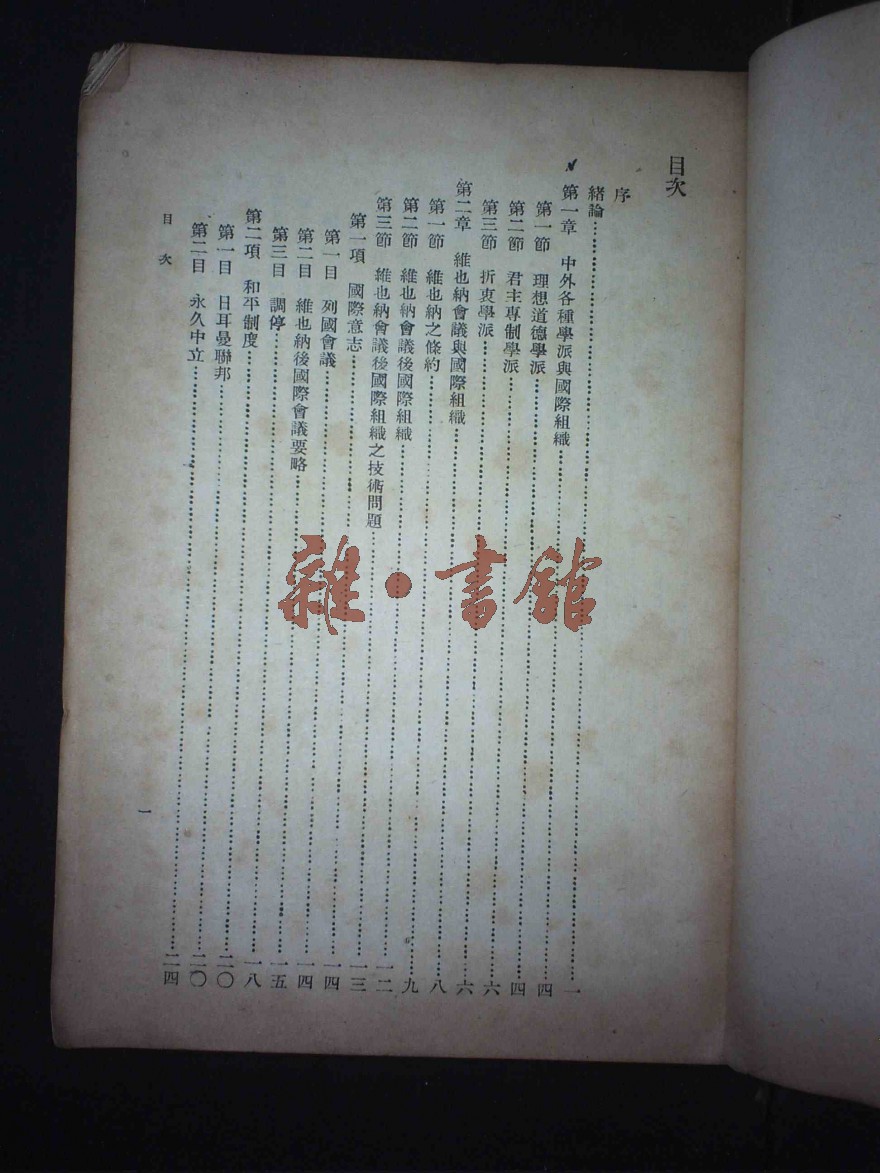 目次
序
緒論……一
第一章 中外各種學派與國際組織……四
第一節 理想道德學派……四
第二節 君主專制學派……六
第三節 折衷學派……六
第二章 維也納會議與國際組織……八
第一節 維也納之條約……九
第二節 維也納會議後國際組織……一二
第三節 維也納會議後國際組織之技術問題……一三
第一項 國際意志……一四
第一目 列國會議……一四
第二目 維也納後國際會議要略……一五
第三目 調停……一八
第二項 和平制度……二〇
第一目 日耳曼聯邦……二〇
第二目 永久中立……二四
目次
一
雜·書館